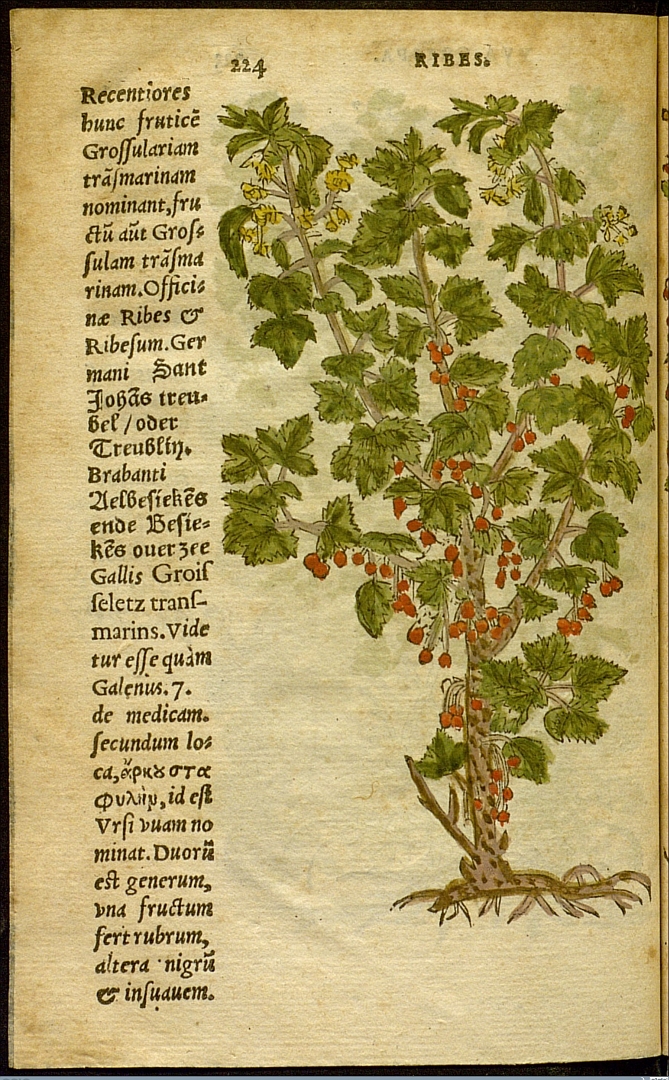 224
RIBES.
Recentiores
hunc fruticē
Groſſulariam
trāſmarinam
nominant, fru
ctū aūt Groſ⸗
ſulam trāſma
rinam. Offici⸗
næ Ribes &
Ribeſum. Ger
mani Sant
Johās treu⸗
bel / oder
Treublin.
Brabanti
Aelbeſiekēs
ende Beſie⸗
kēs ouer zee
Gallis Groiſ
ſeletz tranſ-
marins. Vide
tur eſſe quàm
Galenus. 7.
de medicam.
ſecundum lo⸗
ca, ἄρκȣ στα
φυλὴν, id eſt
Vrſi vuam no
minat. Duorū
eſt generum,
vna fructum
fert rubrum,
altera nigrū
& inſuauem.